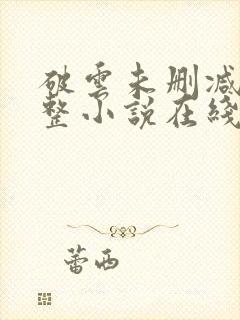 破雲未刪减
整小説在綫
蕾西